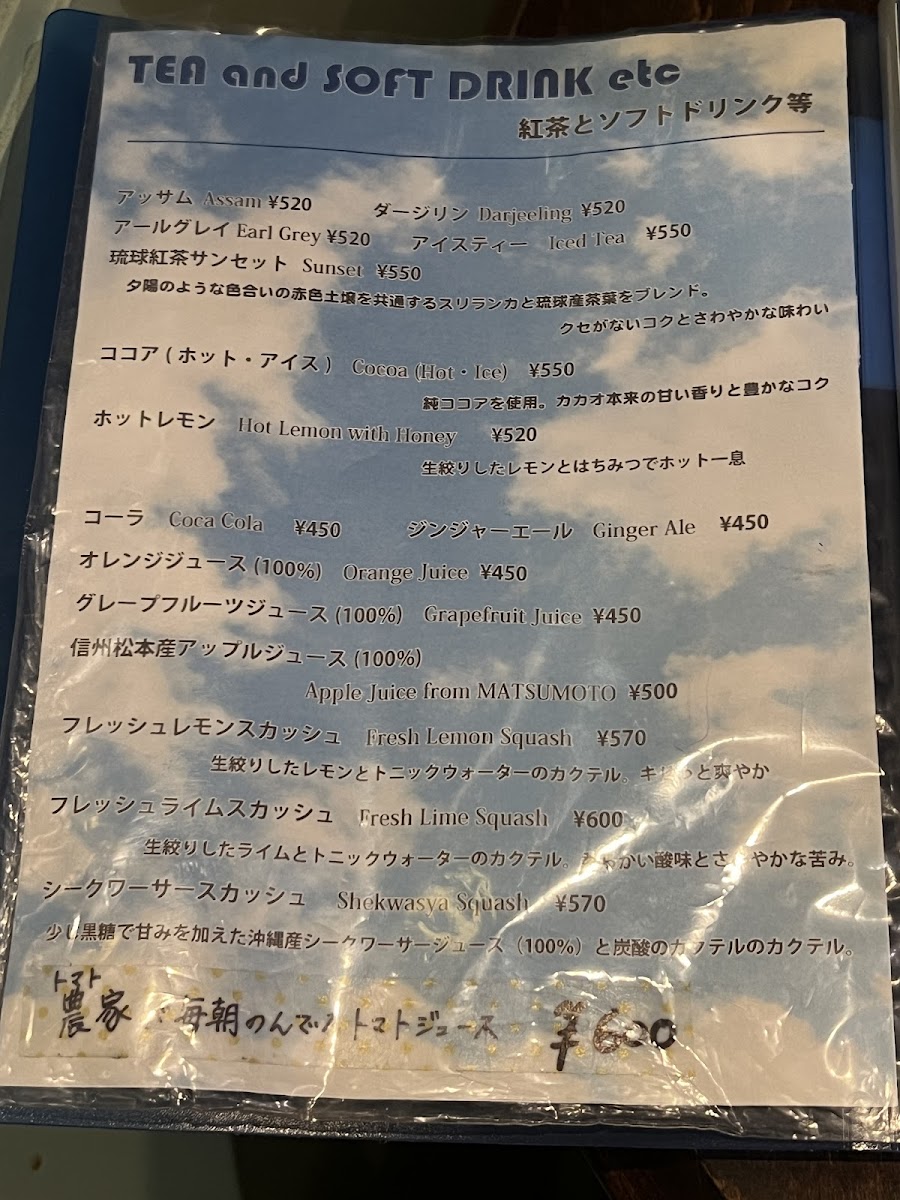 TEA and SOFT DRINK etc
紅茶とソフトドリンク等
アッサム Assam ¥520 ダージリン Darjeeling ¥520
アールグレイ Earl Grey ¥520 アイスティー Iced Tea ¥550
琉球紅茶サンセット Sunset ¥550
夕陽のような色合いの赤色土壌を共通するスリランカと琉球産茶葉をブレンド。
クセがないコクとさわやかな味わい
ココア ( ホット・アイス ) Cocoa (Hot・Ice) ¥550
純ココアを使用。カカオ本来の甘い香りと豊かなコク
ホットレモン Hot Lemon with Honey ¥520
生絞りしたレモンとはちみつでホット一息
コーラ Coca Cola ¥450 ジンジャーエール Ginger Ale ¥450
オレンジジュース (100%) Orange Juice ¥450
グレープフルーツジュース (100%) Grapefruit Juice ¥450
信州松本産アップルジュース (100%)
Apple Juice from MATSUMOTO ¥500
フレッシュレモンスカッシュ Fresh Lemon Squash ¥570
生絞りしたレモンとトニックウォーターのカクテル。 と爽やか
フレッシュライムスカッシュ Fresh Lime Squash ¥600
生絞りしたライムとトニックウォーターのカクテル。 酸味と 苦み。
シークワーサースカッシュ Shekwasya Squash ¥570
少し黒糖で甘みを加えた沖縄産シークワーサージュース（100%）と炭酸のカクテルのカクテル。
トマト
農家 毎朝のんで トマトジュース ¥600